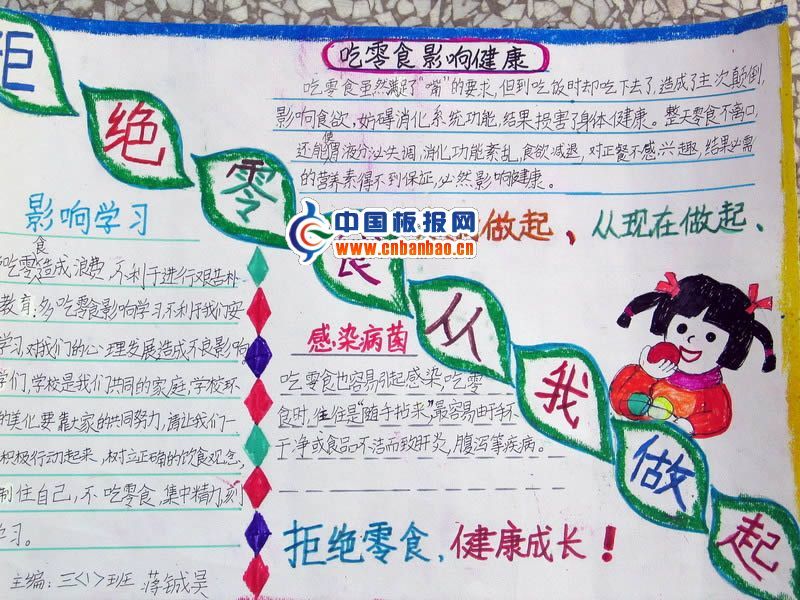 拒绝零食从我做起
吃零食影响健康
吃零食虽然满足了“嘴”的要求,但到吃饭时却吃下去了,造成了主次颠倒,
影响食欲,妨碍消化系统功能,结果损害了身体健康。整天零食不离口,
还能使胃液分泌失调,消化功能紊乱,食欲减退,对正餐不感兴趣,结果必需
的营养素得不到保证,必然影响健康。
做起、从现在做起、
中国板报网
www.cnbanbao.cn
影响学习
吃零食造成浪费,不利于进行艰苦朴
教育。多吃零食影响学习,不利于我们安
学习,对我们的心理发展造成不良影响。
学们,学校是我们共同的家庭,学校环
的美化要靠大家的共同努力,请让我们一
积极行动起来,树立正确的饮食观念,
制住自己,不吃零食,集中精力,刻
学习。
主编:三<1>班
感染病菌
吃零食也容易引起感染,吃零
食时,往往是“随手拈来”,最容易由于不
干净或食品不洁而致肝炎,腹泻等疾病。
拒绝零食,健康成长!